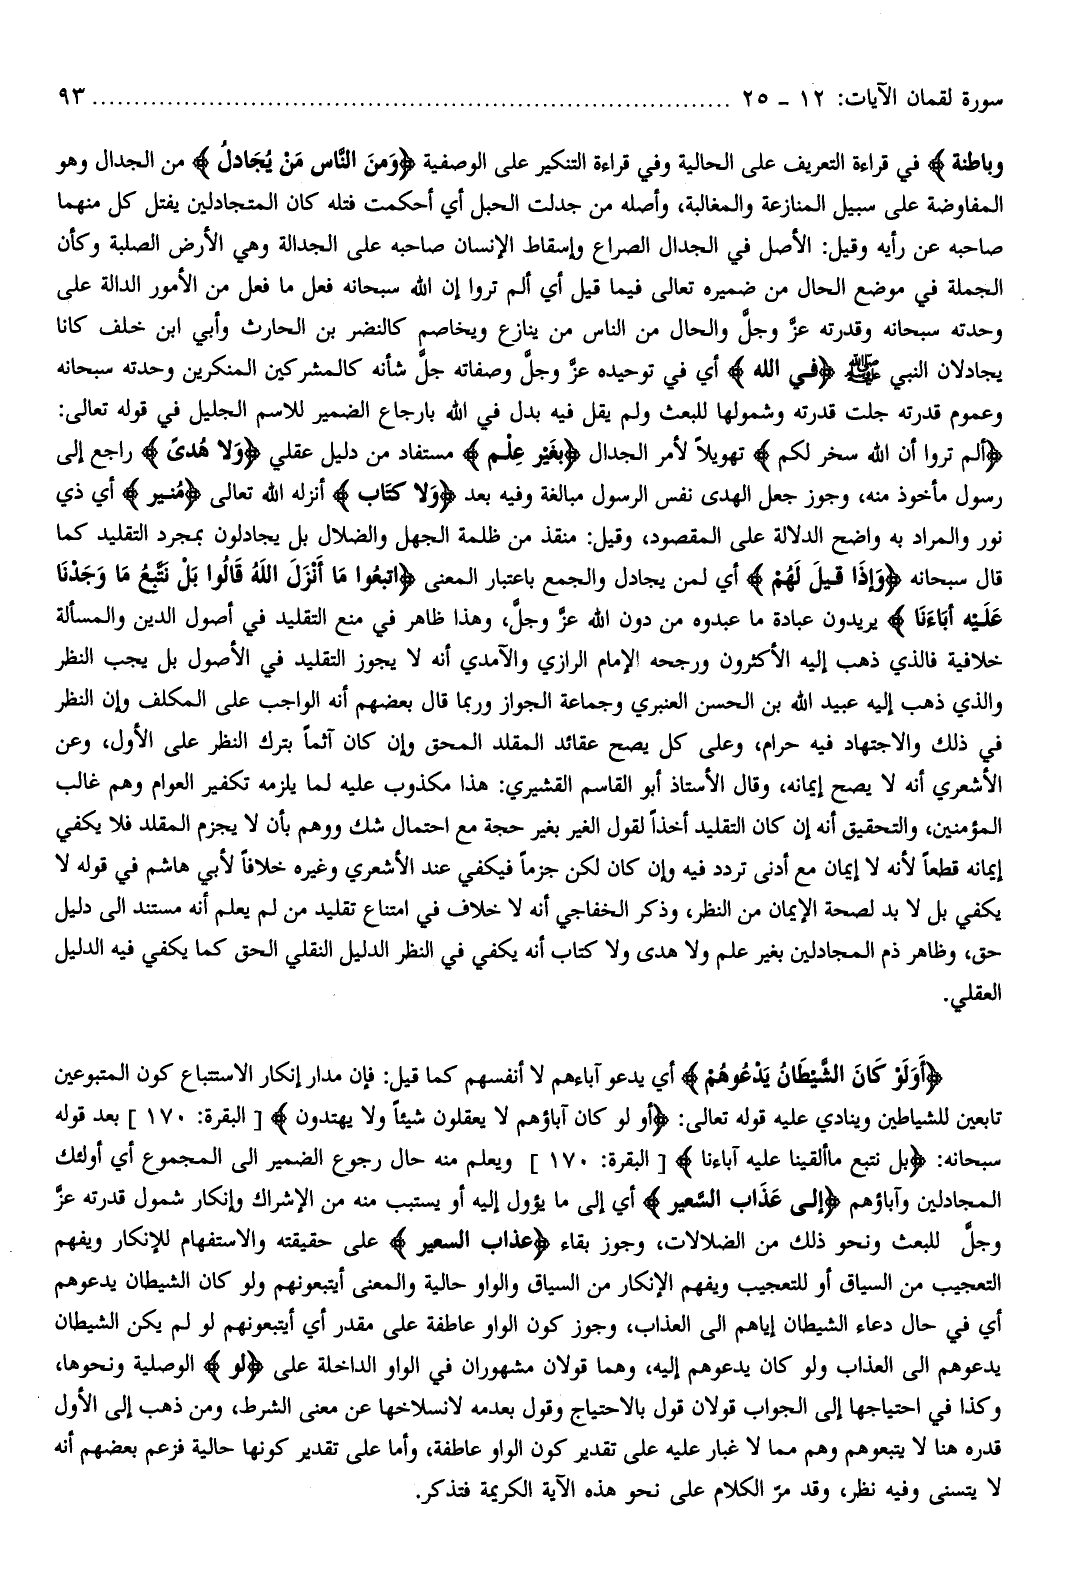 سورة لقمان الآيات: ١٢ - ٢٥ ........................................................................... ٩٣
وباطنة ﴾ في قراءة التعريف على الحالية وفي قراءة التنكير على الوصفية ﴿وَمنَ النَّاس مَنْ يُجَادلُ ﴾ من الجدال وهو
المفاوضة على سبيل المنازعة والمغالبة، وأصله من جدلت الحبل أي أحكمت فتله كان المتجادلين يفتل كل منهما
صاحبه عن رأيه وقيل: الأصل في الجدال الصراع وإسقاط الإنسان صاحبه على الجدالة وهي الأرض الصلبة وكأن
الجملة في موضع الحال من ضميره تعالى فيما قيل أي ألم تروا إن الله سبحانه فعل ما فعل من الأمور الدالة على
وحدته سبحانه وقدرته عزَّ وجلَّ والحال من الناس من ينازع ويخاصم كالنضر بن الحارث وأبي ابن خلف كانا
يجادلان النبي ﷺ ﴿فـي الله ﴾ أي في توحيده عزَّ وجلَّ وصفاته جلَّ شأنه كالمشركين المنكرين وحدته سبحانه
وعموم قدرته جلت قدرته وشمولها للبعث ولم يقل فيه بدل في الله بارجاع الضمير للاسم الجليل في قوله تعالى:
﴿ألم تروا أن الله سخر لكم ﴾ تهويلاً لأمر الجدال ﴿بغَيْر عِلْـم ﴾ مستفاد من دليل عقلي ﴿وَلا هُدىً ﴾ راجع إلى
رسول مأخوذ منه، وجوز جعل الهدى نفس الرسول مبالغة وفيه بعد ﴿وَلا كتَاب ﴾ أنزله الله تعالى ﴿مُنـير ﴾ أي ذي
نور والمراد به واضح الدلالة على المقصود، وقيل: منقذ من ظلمة الجهل والضلال بل يجادلون بمجرد التقليد كما
قال سبحانه ﴿وَإذَا قـيلَ لَهُمْ ﴾ أي لمن يجادل والجمع باعتبار المعنى ﴿اتبعُوا مَا أَنْزَلَ اللَهُ قَالُوا بَلْ نَتَّبعُ مَا وَجَدْنَا
عَلَـيْه أبَاءَنَا ﴾ يريدون عبادة ما عبدوه من دون الله عزَّ وجلَّ، وهذا ظاهر في منع التقليد في أصول الدين والمسألة
خلافية فالذي ذهب إليه الأكثرون ورجحه الإمام الرازي والآمدي أنه لا يجوز التقليد في الأصول بل يجب النظر
والذي ذهب إليه عبيد الله بن الحسن العنبري وجماعة الجواز وربما قال بعضهم أنه الواجب على المكلف وإن النظر
في ذلك والاجتهاد فيه حرام، وعلى كل يصح عقائد المقلد المحق وإن كان آثماً بترك النظر على الأول، وعن
الأشعري أنه لا يصح إيمانه، وقال الأستاذ أبو القاسم القشيري: هذا مكذوب عليه لما يلزمه تكفير العوام وهم غالب
المؤمنين، والتحقيق أنه إن كان التقليد أخذاً لقول الغير بغير حجة مع احتمال شك ووهم بأن لا يجزم المقلد فلا يكفي
إيمانه قطعاً لأنه لا إيمان مع أدنى تردد فيه وإن كان لكن جزماً فيكفي عند الأشعري وغيره خلافاً لأبي هاشم في قوله لا
يكفي بل لا بد لصحة الإيمان من النظر، وذكر الخفاجي أنه لا خلاف في امتناع تقليد من لم يعلم أنه مستند الى دليل
حق، وظاهر ذم المجادلين بغير علم ولا هدى ولا كتاب أنه يكفي في النظر الدليل النقلي الحق كما يكفي فيه الدليل
العقلي.
﴿أَوَلَوْ كَانَ الشَّيْطَانُ يَدْعُوهُمْ ﴾ أي يدعو آباءهم لا أنفسهم كما قيل: فإن مدار إنكار الاستتباع كون المتبوعين
تابعين للشياطين وينادي عليه قوله تعالى: ﴿أو لو كان آباؤهم لا يعقلون شيئاً ولا يهتدون ﴾ [ البقرة: ١٧٠ ] بعد قوله
سبحانه: ﴿بل نتبع ماألقينا عليه آباءنا ﴾ [ البقرة: ١٧٠ ] ويعلم منه حال رجوع الضمير الى المجموع أي أولئك
المجادلين وآباؤهم ﴿إلـى عَذَاب السَّعير ﴾ أي إلى ما يؤول إليه أو يستبب منه من الإشراك وإنكار شمول قدرته عزَّ
وجلَّ للبعث ونحو ذلك من الضلالات، وجوز بقاء ﴿عذاب السعير ﴾ على حقيقته والاستفهام للإنكار ويفهم
التعجيب من السياق أو للتعجيب ويفهم الإنكار من السياق والواو حالية والمعنى أيتبعونهم ولو كان الشيطان يدعوهم
أي في حال دعاء الشيطان إياهم الى العذاب، وجوز كون الواو عاطفة على مقدر أي أيتبعونهم لو لم يكن الشيطان
يدعوهم الى العذاب ولو كان يدعوهم إليه، وهما قولان مشهوران في الواو الداخلة على ﴿لو ﴾ الوصلية ونحوها،
وكذا في احتياجها إلى الجواب قولان قول بالاحتياج وقول بعدمه لانسلاخها عن معنى الشرط، ومن ذهب إلى الأول
قدره هنا لا يتبعوهم وهم مما لا غبار عليه على تقدير كون الواو عاطفة، وأما على تقدير كونها حالية فزعم بعضهم أنه
لا يتسنى وفيه نظر، وقد مرّ الكلام على نحو هذه الآية الكريمة فتذكر.